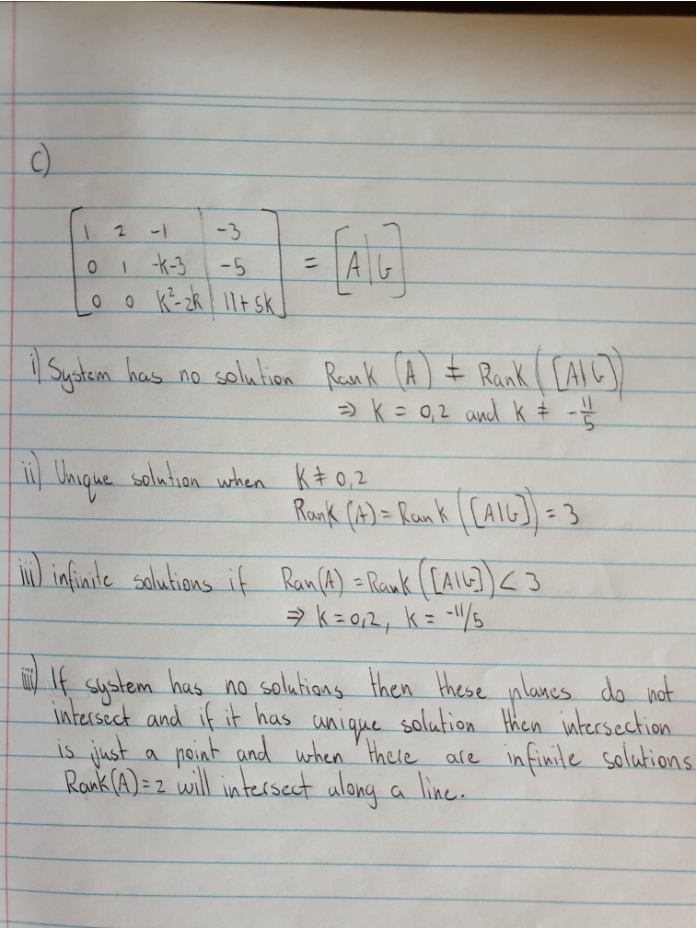 c)
[ 1 2 -1 | -3 ]
[ 0 1 -k-3 | -5 ] = [A|G]
[ 0 0 k²-2k | 11+5k ]
i) System has no solution Rank (A) ≠ Rank ([A|G])
⇒ K = 0,2 and K ≠ -11/5
ii) Unique solution when K ≠ 0,2
Rank (A) = Rank ([A|G]) = 3
iii) infinite solutions if Ran(A) = Rank ([A|G]) < 3
⇒ K = 0,2, K = -11/5
iiii) If system has no solutions then these planes do not
intersect and if it has unique solution then intersection
is just a point and when there are infinite solutions
Rank(A)=2 will intersect along a line.